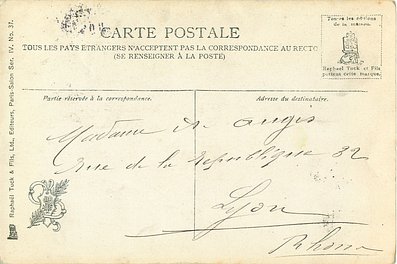 CARTE POSTALE
TOUS LES PAYS ETRANGERS N'ACCEPTENT PAS LA CORRESPONDANCE AU RECTO
(SE RENSEIGNER À LA POSTE)
Toutes les éditions
de la maison
Raphael Tuck et Fils
portent cette marque.
Partie réservée à la correspondance.
Adresse du destinataire.
Madame de Augis
Rue de la Republique 82
Lyon
Rhone
Raphael Tuck & Fils, Ltd., Editeurs, Paris-Salon Ser. IV. No. 37.